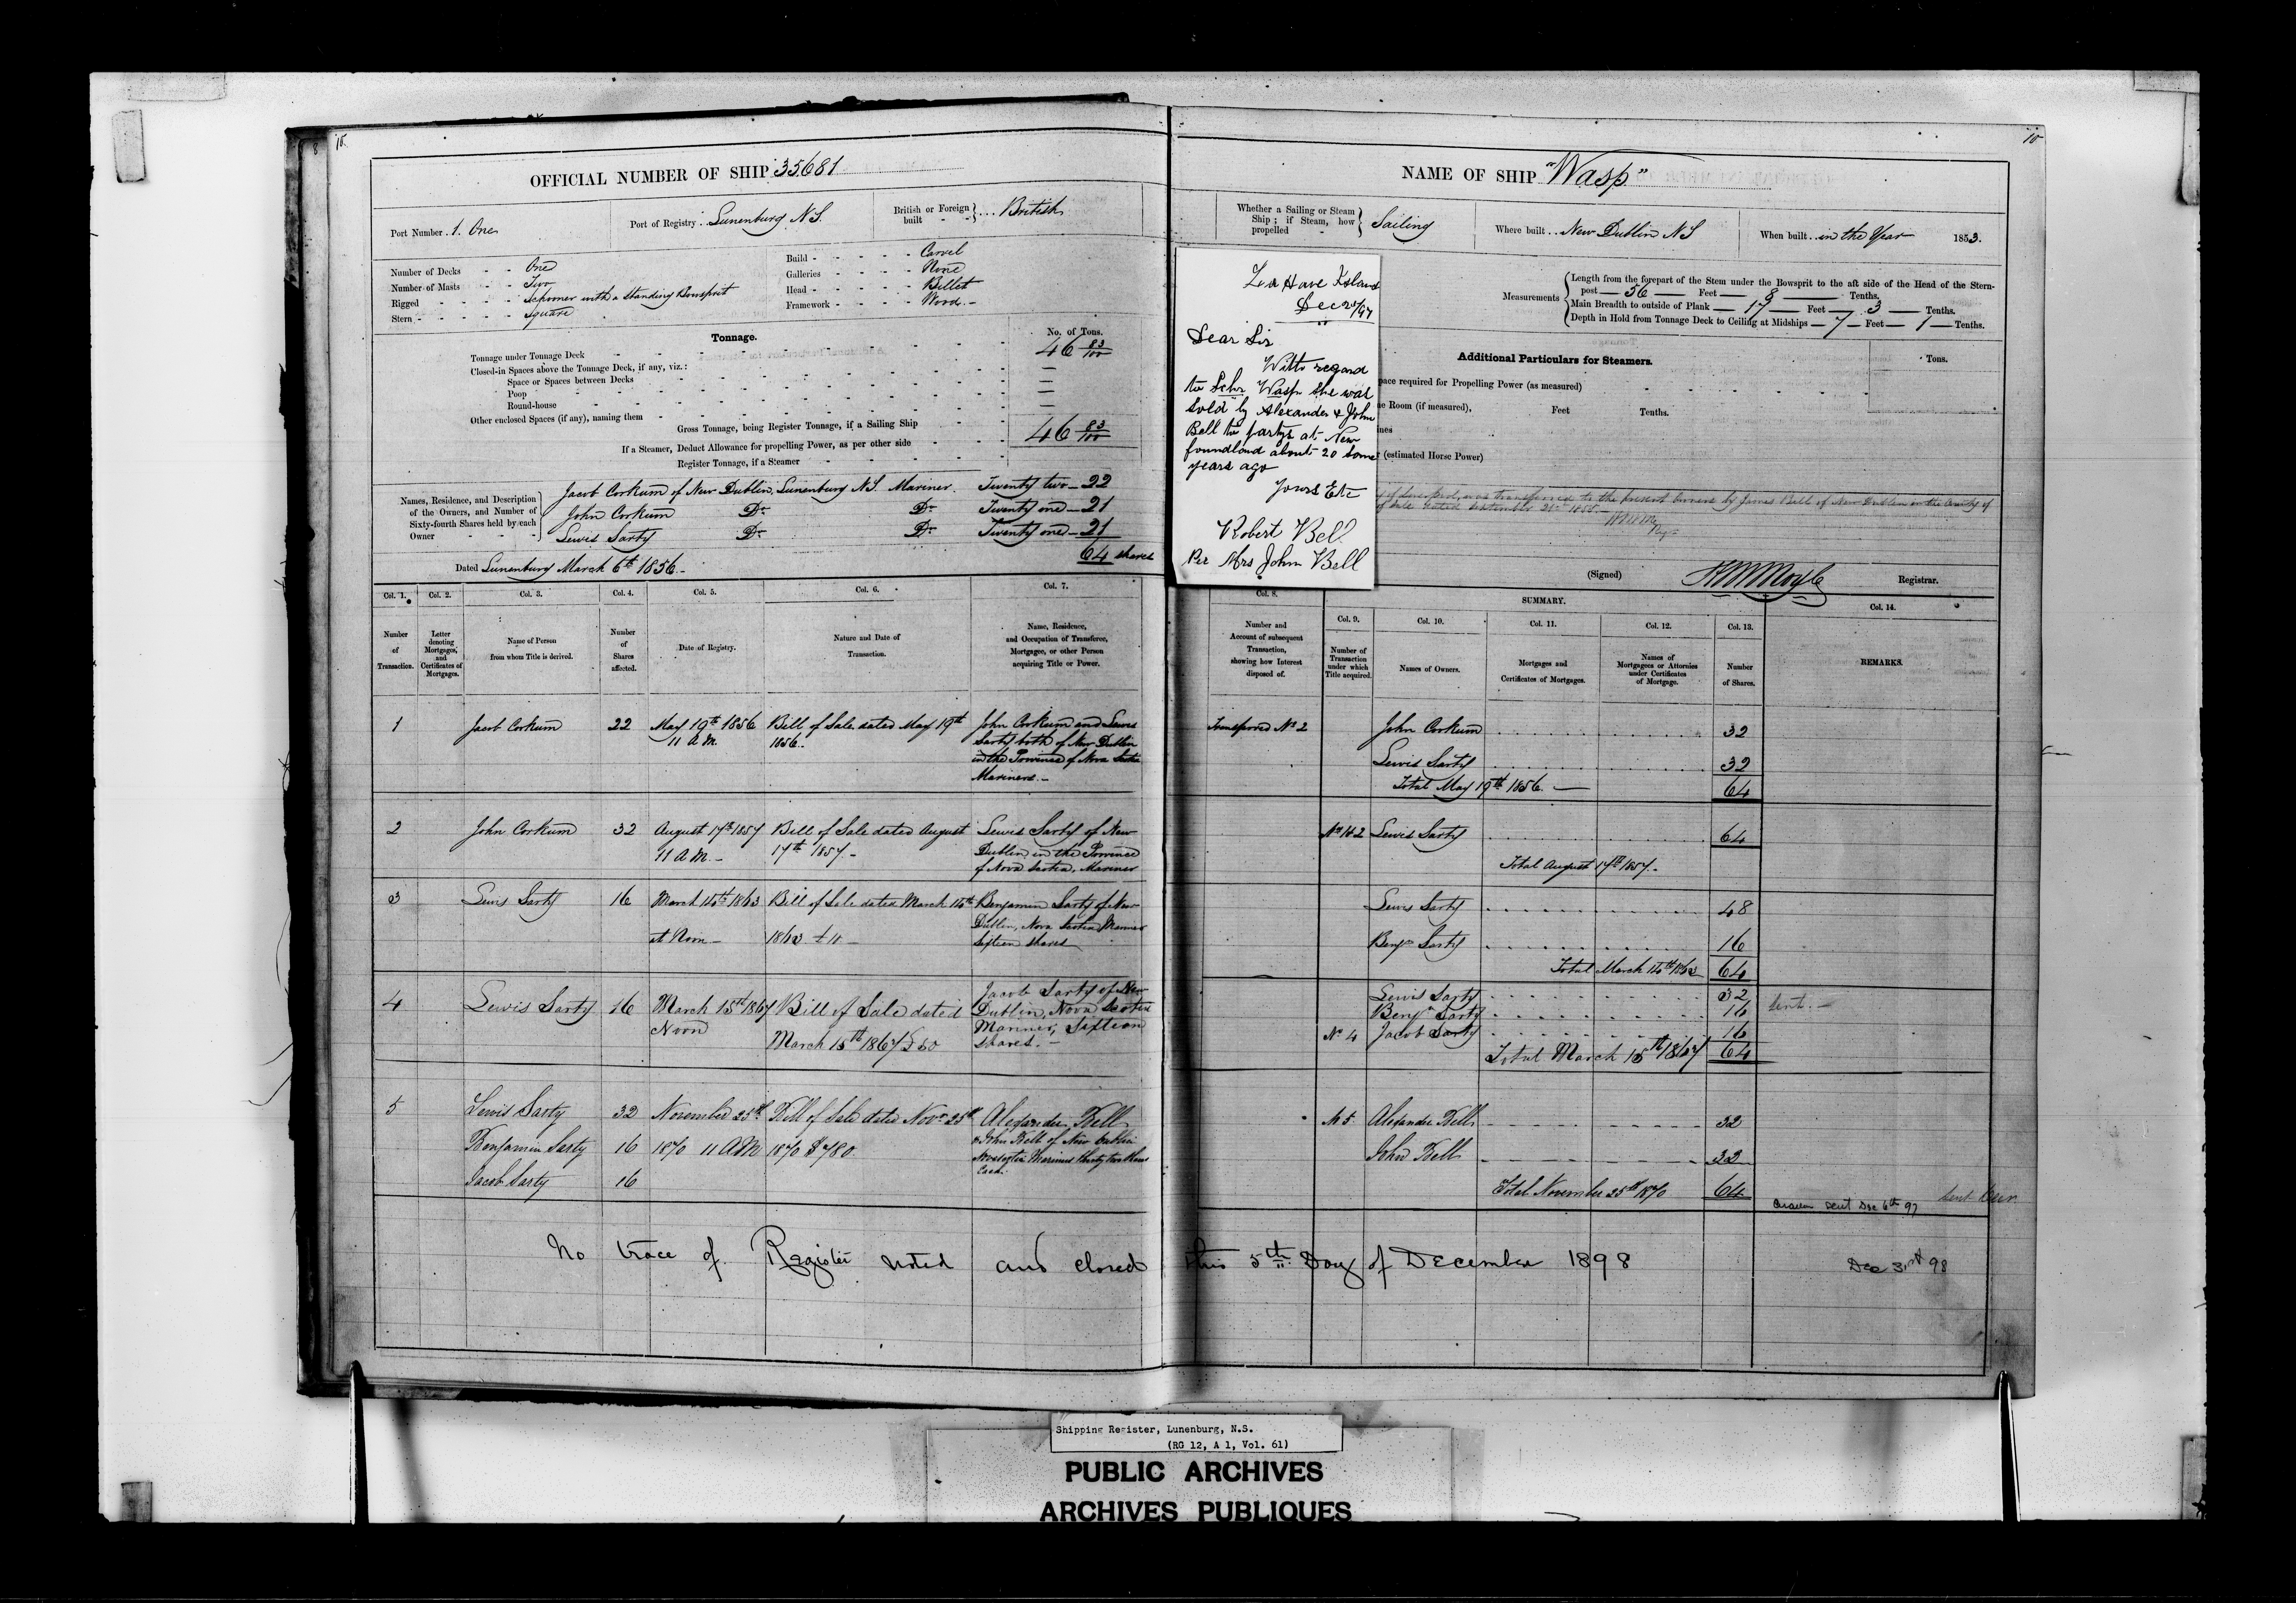 10
OFFICIAL NUMBER OF SHIP 35681
Port Number . 1. One
Port of Registry . Lunenburg N.S.
British or Foreign built - - } ... British
Number of Decks - - One
Number of Masts - - Two
Rigged - - - - Schooner with a Standing Bowsprit
Stern - - - - - square
Build - - - - - Carvel
Galleries - - - - None
Head - - - - - Billet
Framework - - - - Wood. -
Tonnage.
No. of Tons.
Tonnage under Tonnage Deck 46 83/100
Closed-in Spaces above the Tonnage Deck, if any, viz.: —
Space or Spaces between Decks —
Poop —
Round-house —
Other enclosed Spaces (if any), naming them —
Gross Tonnage, being Register Tonnage, if a Sailing Ship 46 83/100
If a Steamer, Deduct Allowance for propelling Power, as per other side
Register Tonnage, if a Steamer
Names, Residence, and Description of the Owners, and Number of Sixty-fourth Shares held by each Owner
Jacob Corkum of New Dublin, Lunenburg N.S. Mariner. Twenty two — 22
John Corkum Do Do Twenty one — 21
Lewis Sarty Do Do Twenty one — 21
64 shares
Dated Lunenburg March 6th 1856. -
Col. 1. Col. 2. Col. 3. Col. 4. Col. 5. Col. 6. Col. 7.
Number of Transaction.
Letter denoting Mortgages, and Certificates of Mortgages.
Name of Person from whom Title is derived.
Number of Shares affected.
Date of Registry.
Nature and Date of Transaction.
Name, Residence, and Occupation of Transferee, Mortgagee, or other Person acquiring Title or Power.
1 Jacob Corkum 22 May 19th 1856 Bill of Sale dated May 19th John Corkum and Lewis
11 A.M. 1856. Sarty both of New Dublin
in the Province of Nova Scotia
Mariners. -
2 John Corkum 32 August 17th 1857 Bill of Sale dated August Lewis Sarty of New
11 A M - 17th 1857 - Dublin, in the Province
of Nova Scotia, Mariner
3 Lewis Sarty 16 Bill of Sale dated March Benjamin Sarty of New
at Noon - 1863 Dublin, Nova Scotia Mariner
Sixteen shares
4 Lewis Sarty 16 March 15th 1867 Bill of Sale dated Jacob Sarty of New
Noon March 15th 1867 £50 Dublin, Nova Scotia
Mariner, Sixteen
shares. -
5 Lewis Sarty 32 November 25th Bill of Sale dated Novr 25th Alexander Bell
Benjamin Sarty 16 1870 11 AM 1870 $780. & John Bell of New Dublin
Jacob Sarty 16 Mariners thirty two
Each.
No trace of Register noted and closed this 5th Day of December 1898
10
NAME OF SHIP "Wasp"
Whether a Sailing or Steam Ship; if Steam, how propelled } Sailing
Where built . . New Dublin N S
When built . . in the Year 1853.
Measurements
Length from the forepart of the Stem under the Bowsprit to the aft side of the Head of the Stern-
post — 56 — Feet — 8 — Tenths.
Main Breadth to outside of Plank — 17 — Feet — 3 — Tenths.
Depth in Hold from Tonnage Deck to Ceiling at Midships — 7 — Feet — 1 — Tenths.
La Have Island
Dec
Dear Sir
With regard
to Schr Wasp she was
sold by Alexander & John
Bell to partys at New
foundland about 20 some
years ago
Yours Etc
Robert Bell
Per Mrs John Bell
Additional Particulars for Steamers.
Tons.
pace required for Propelling Power (as measured)
ne Room (if measured), Feet Tenths.
nes
(estimated Horse Power)
was transferred to the present Owners by James Bell of New Dublin in the County of
of Sale dated September 1855. -
(Signed) Registrar.
Col. 8.
SUMMARY.
Col. 9. Col. 10. Col. 11. Col. 12. Col. 13. Col. 14.
Number and Account of subsequent Transaction, showing how Interest disposed of.
Number of Transaction under which Title acquired.
Names of Owners.
Mortgages and Certificates of Mortgages.
Names of Mortgagees or Attornies under Certificates of Mortgage.
Number of Shares.
REMARKS.
Transferred No 2 John Corkum 32
Lewis Sarty 32
Total May 19th 1856. — 64
Lewis Sarty 64
Total August 17th 1857. -
Lewis Sarty 48
Benjn Sarty 16
Total March 1863 64
Lewis Sarty 32
Benjn Sarty 16
No 4 Jacob Sarty 16
Total March 15th 1867 64
Sent. -
No 5. Alexander Bell 32
John Bell 32
Total November 25th 1870 64
Sent Dec 6th 97
Dec 31st 98
Shipping Register, Lunenburg, N.S.
(RG 12, A 1, Vol. 61)
PUBLIC ARCHIVES
ARCHIVES PUBLIQUES